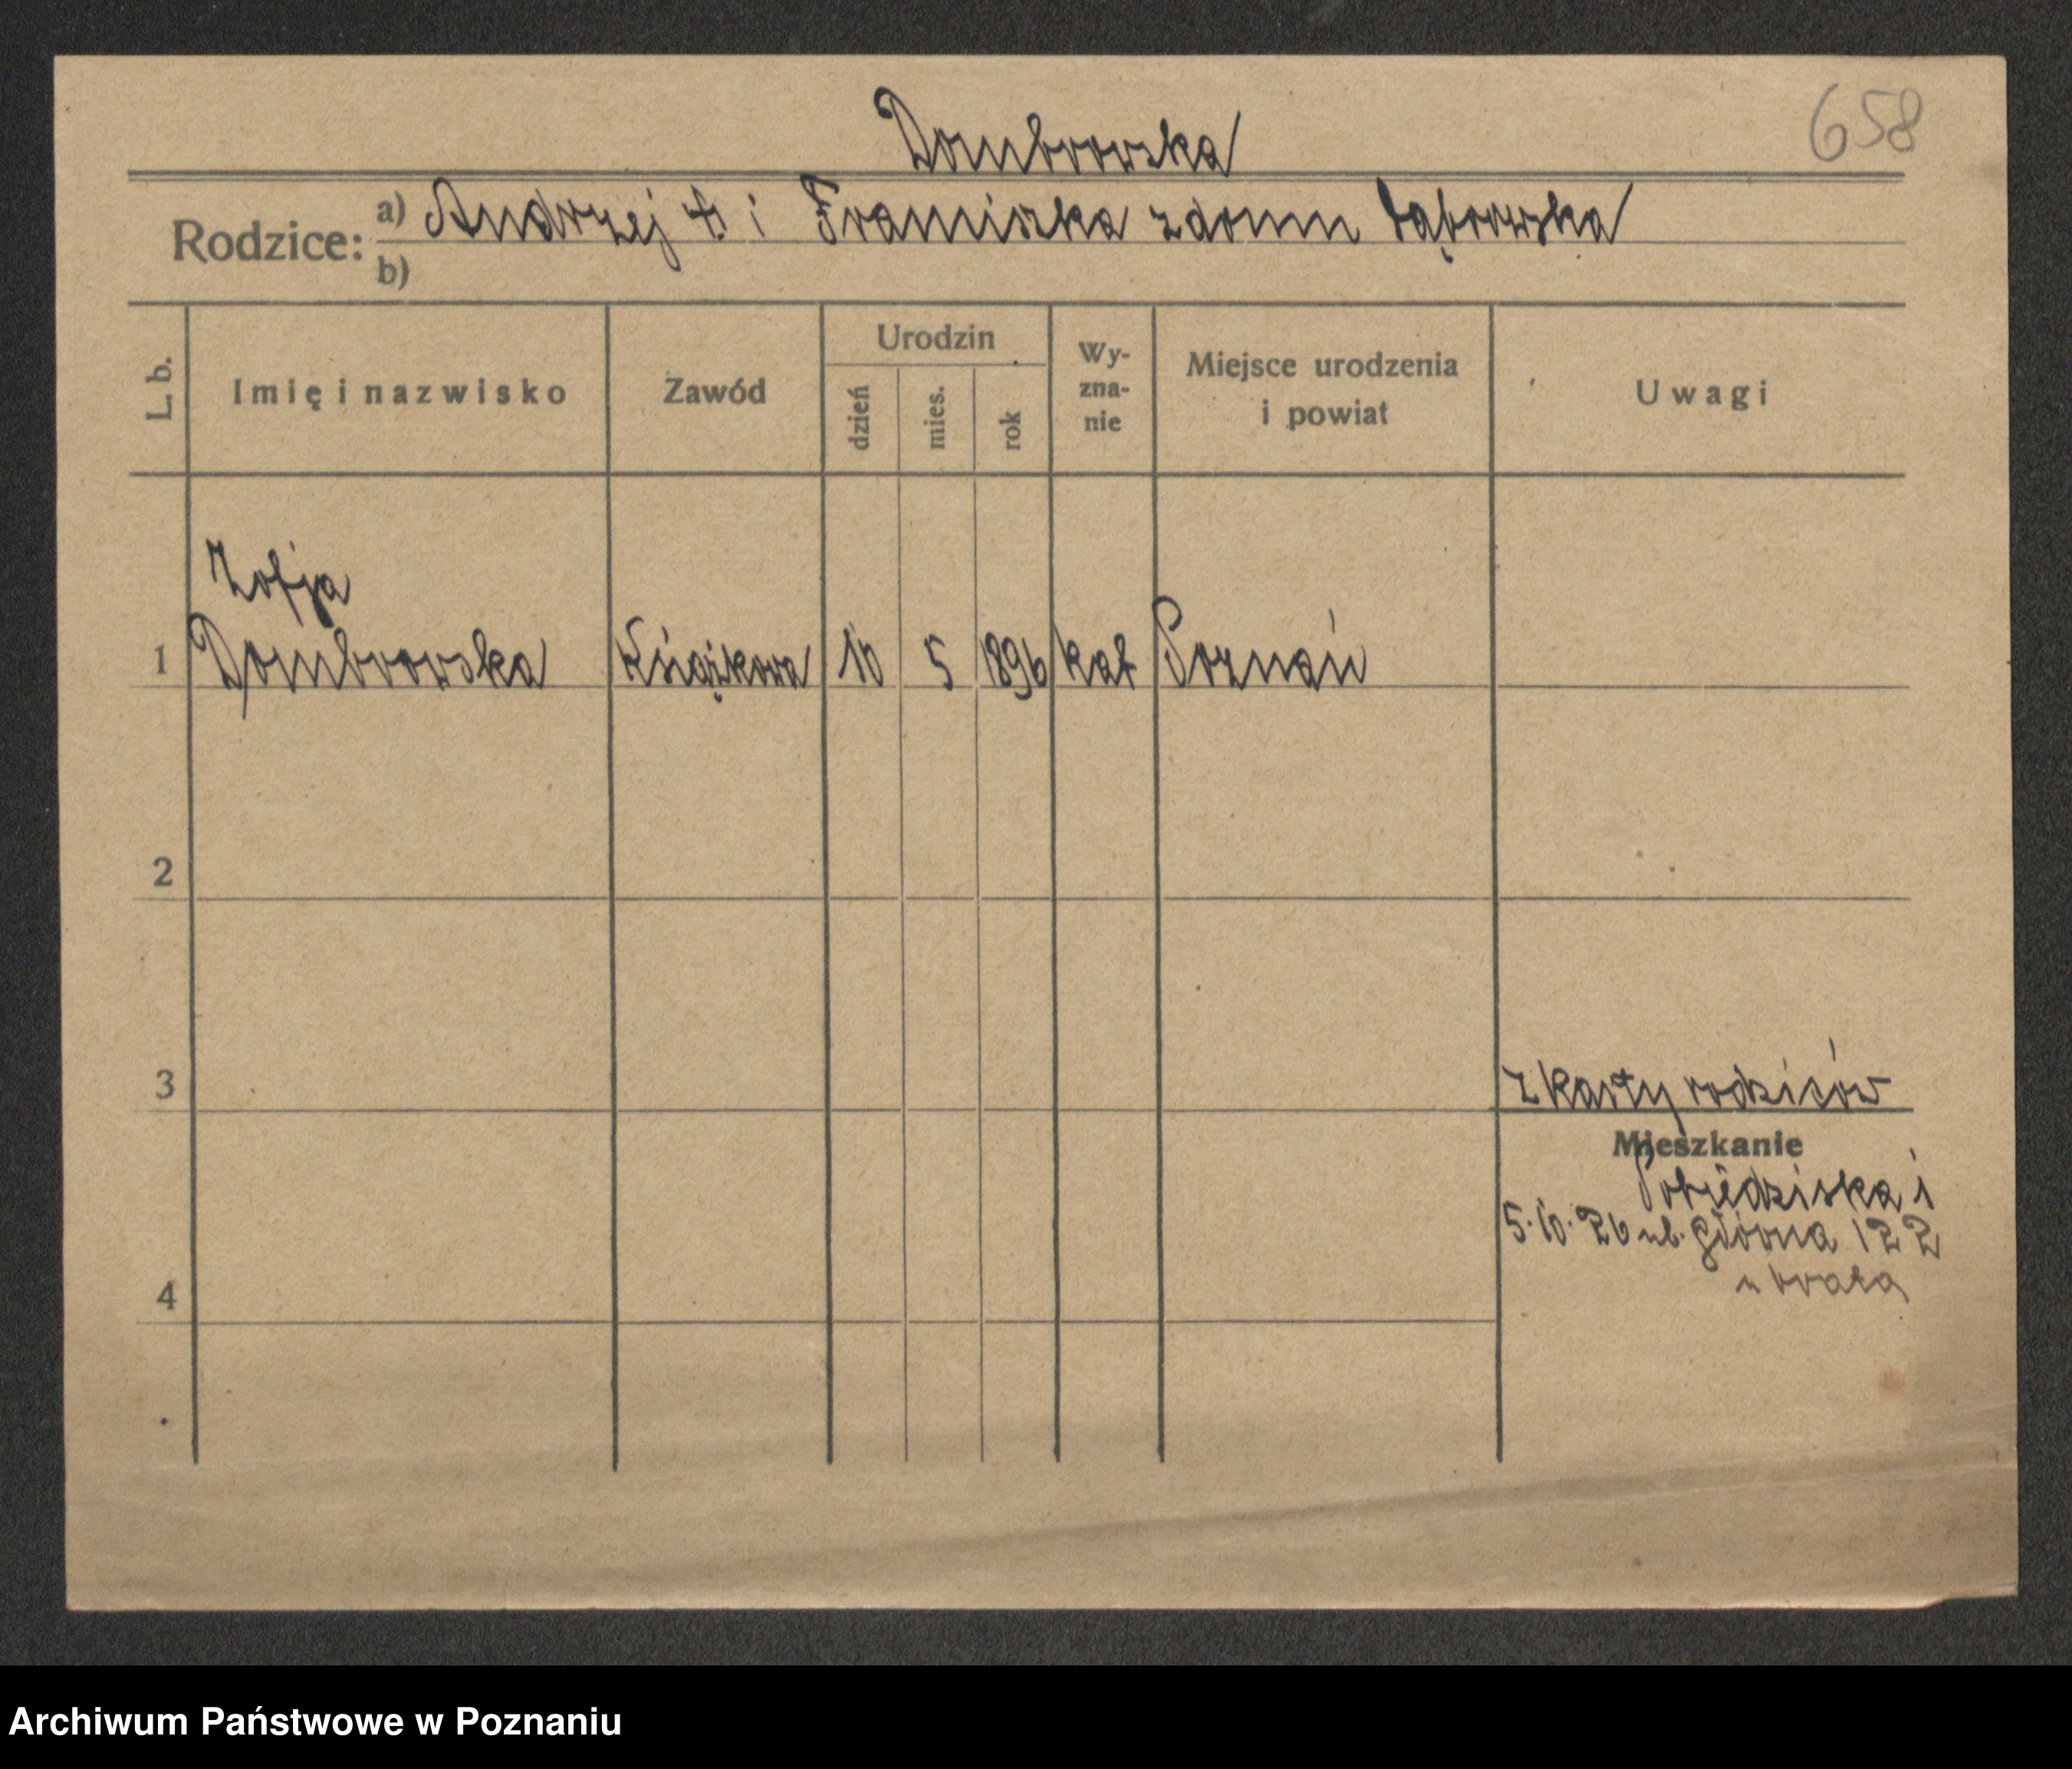 658
Dombrowska
Rodzice: a) Andrzej † i Franciszka z domu Dąbrowska
b)
L. b. Imię i nazwisko Zawód Urodzin dzień mies. rok Wy-zna-nie Miejsce urodzenia i powiat Uwagi
Zofja
1 Dombrowska Książkowa 10 5 1896 kat Poznań
2
3
z karty rodziców
Mieszkanie
Pobiedziska
5.10.26 ul. Główna 122
u brata
4
Archiwum Państwowe w Poznaniu